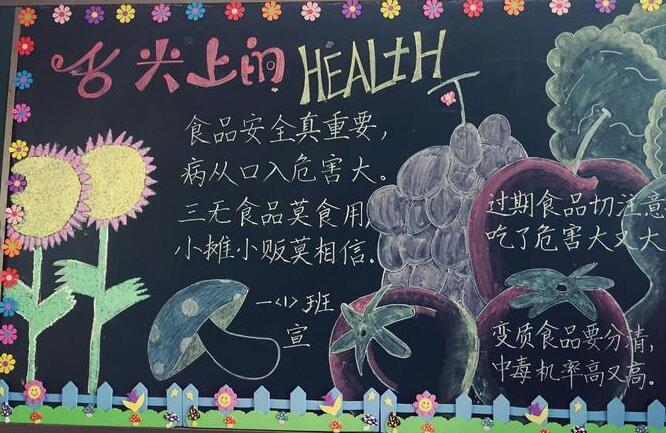 舌尖上的HEALTH
食品安全真重要,
病从口入危害大。
三无食品莫食用,
小摊小贩莫相信.
一〈1〉班
宣
过期食品切注意
吃了危害大又大
变质食品要分清,
中毒机率高又高。